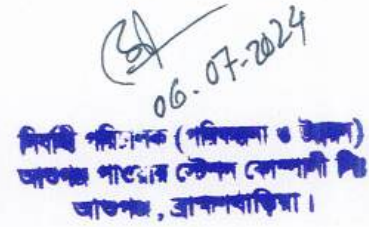 06.07-2024
নির্বাহী পরিচালক (পরিকল্পনা ও উন্নয়ন)
আশুগঞ্জ পাওয়ার স্টেশন কোম্পানী লিঃ
আশুগঞ্জ, ব্রাহ্মণবাড়িয়া।